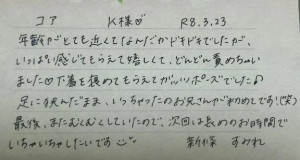 コア K様♡ R8.3.23
年齢がとても近くてなんだかドキドキでしたが、
いっぱい感じてもらえて嬉しくて、どんどん責めちゃい
ました♡下着を褒めてもらえてガッツポーズでした
足に挟んだまま、いっちゃったのお兄さんが初めてです!(笑)
最後、またむくむくしていたので、次回は長めのお時間で
いちゃいちゃしたいです
新條 すみれ